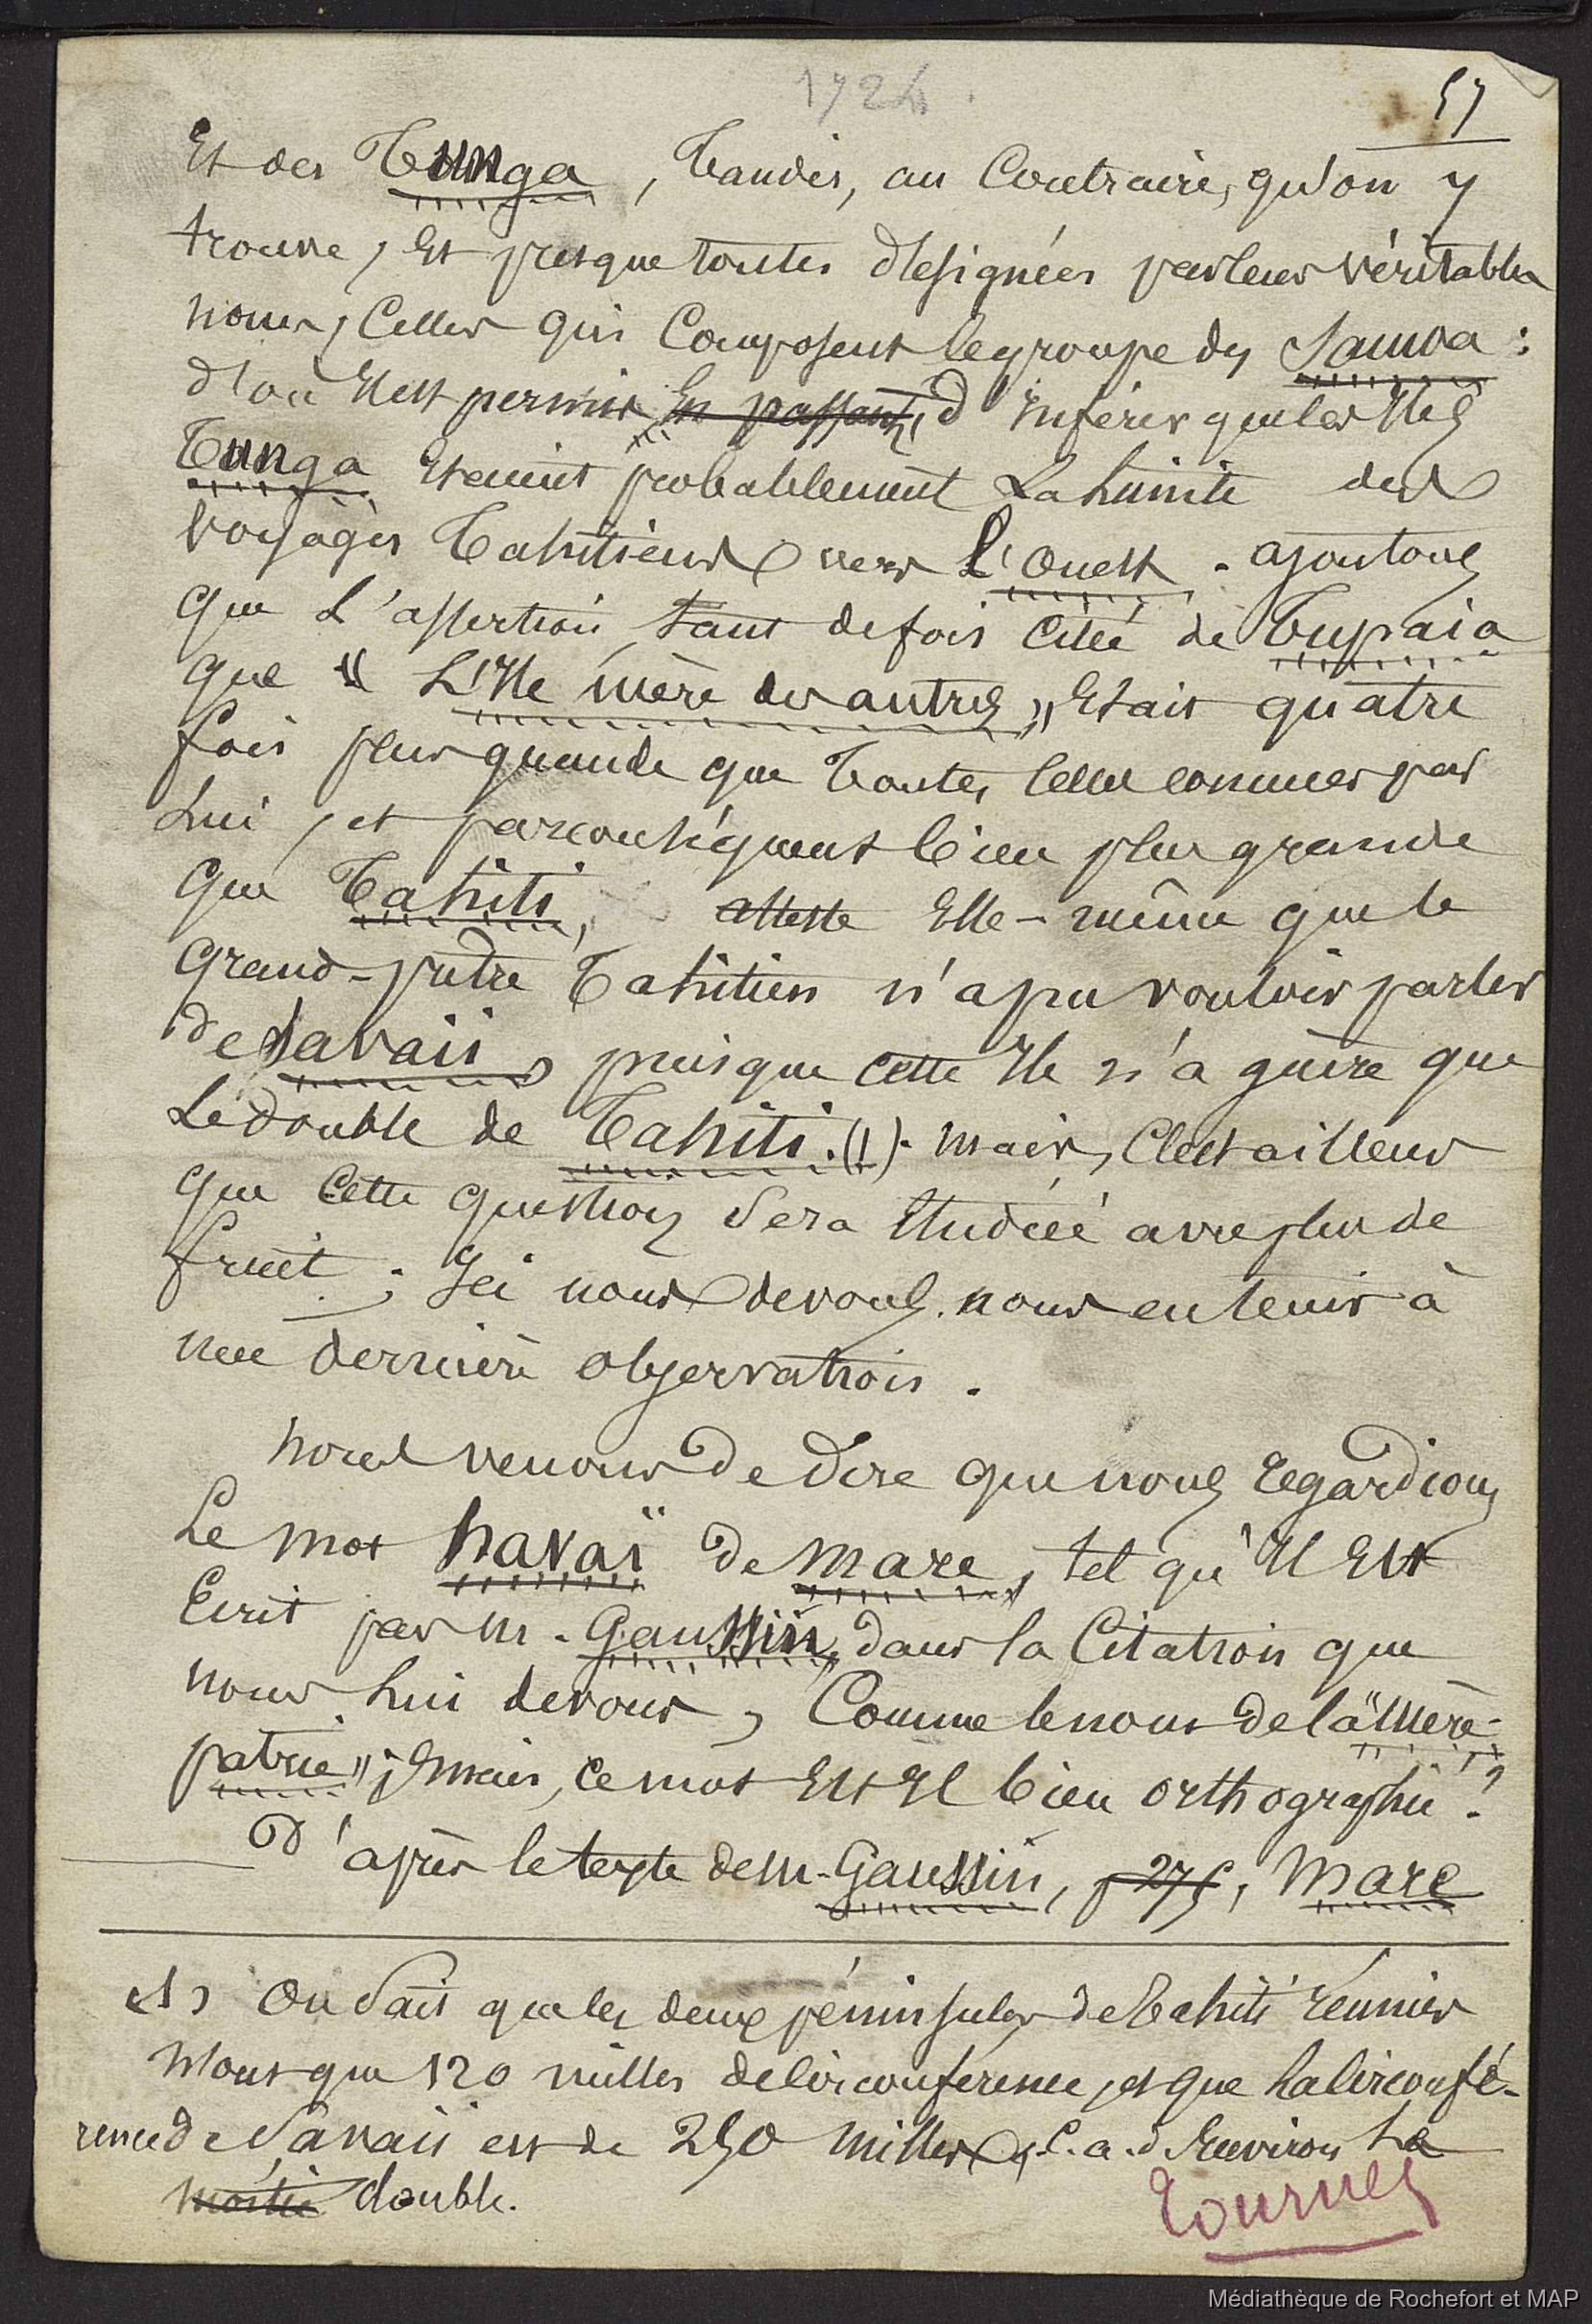 1724.
57
Et des Tunga, tandis, au Contraire, qu'on y
trouve, Et presque toutes désignées par leur véritables
noms, Celles qui Composent le groupe des Samoa :
d'où Il est permis En passant, d'Inférer que les Iles
Tunga Etaient probablement La limite des
voyages Tahitiens vers L'Ouest. ajoutons
que L'assertion tant de fois Citée de Tupaia
que " L'Ile mère des autres " Etait quatre
fois plus grande que Toutes Celles connues par
Lui, et par conséquent bien plus grande
que Tahiti, atteste Elle-même que le
Grand-prêtre Tahitien n'a pu vouloir parler
de Savaii, puisque cette Ile n'a guère que
Le double de Tahiti. (1). Mais, C'est ailleurs
que Cette question Sera Etudiée avec plus de
fruit ; Ici nous devons nous en tenir à
une dernière observation.
Nous venons de dire que nous regardions
Le mot havaï de Mare, tel qu'Il Est
Ecrit par M. Gaussin, dans la Citation que
nous Lui devons, Comme le nom de la "Mère-
patrie" ; Mais, ce mot Est Il bien orthographié ?
D'après le texte de M. Gaussin, p 275, Mare
(1) On Sait que les deux péninsules de Tahiti réunies
n'ont que 120 milles de Circonférence, et que La Circonfé-
rence de Savaii est de 250 milles, C.a.d. Environ La
moitié double.
Tournez
Médiathèque de Rochefort et MAP